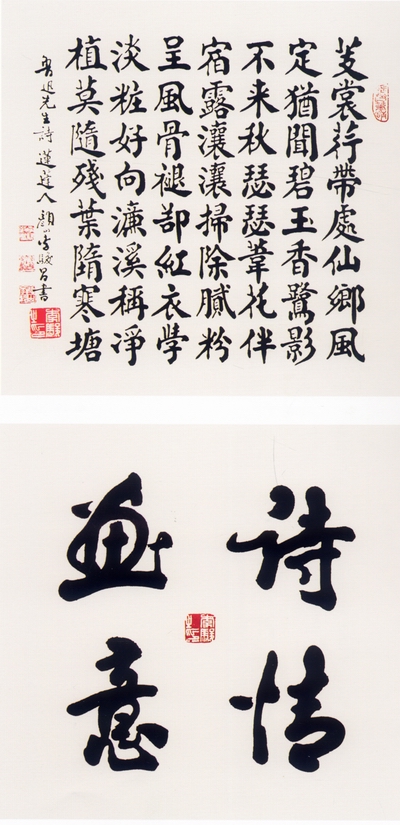 芰裳荇帶處仙鄉風
定猶聞碧玉香鷺影
不来秋瑟瑟葦花伴
宿露瀼瀼掃除膩粉
呈風骨褪郤紅衣學
淡粧好向濂溪稱淨
植莫隨殘葉隋寒塘
魯迅先生詩蓮蓬人 書
詩情
畫意